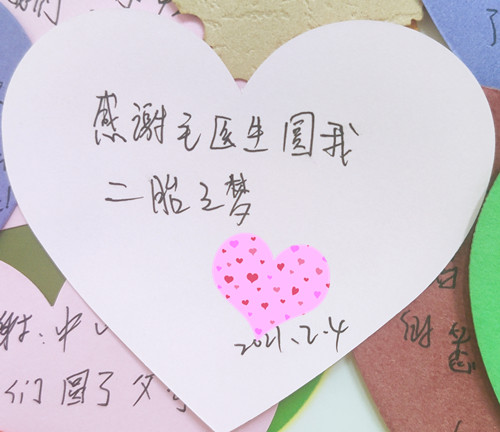 感谢毛医生圆我
二胎之梦
2021.2.4
们圆了父